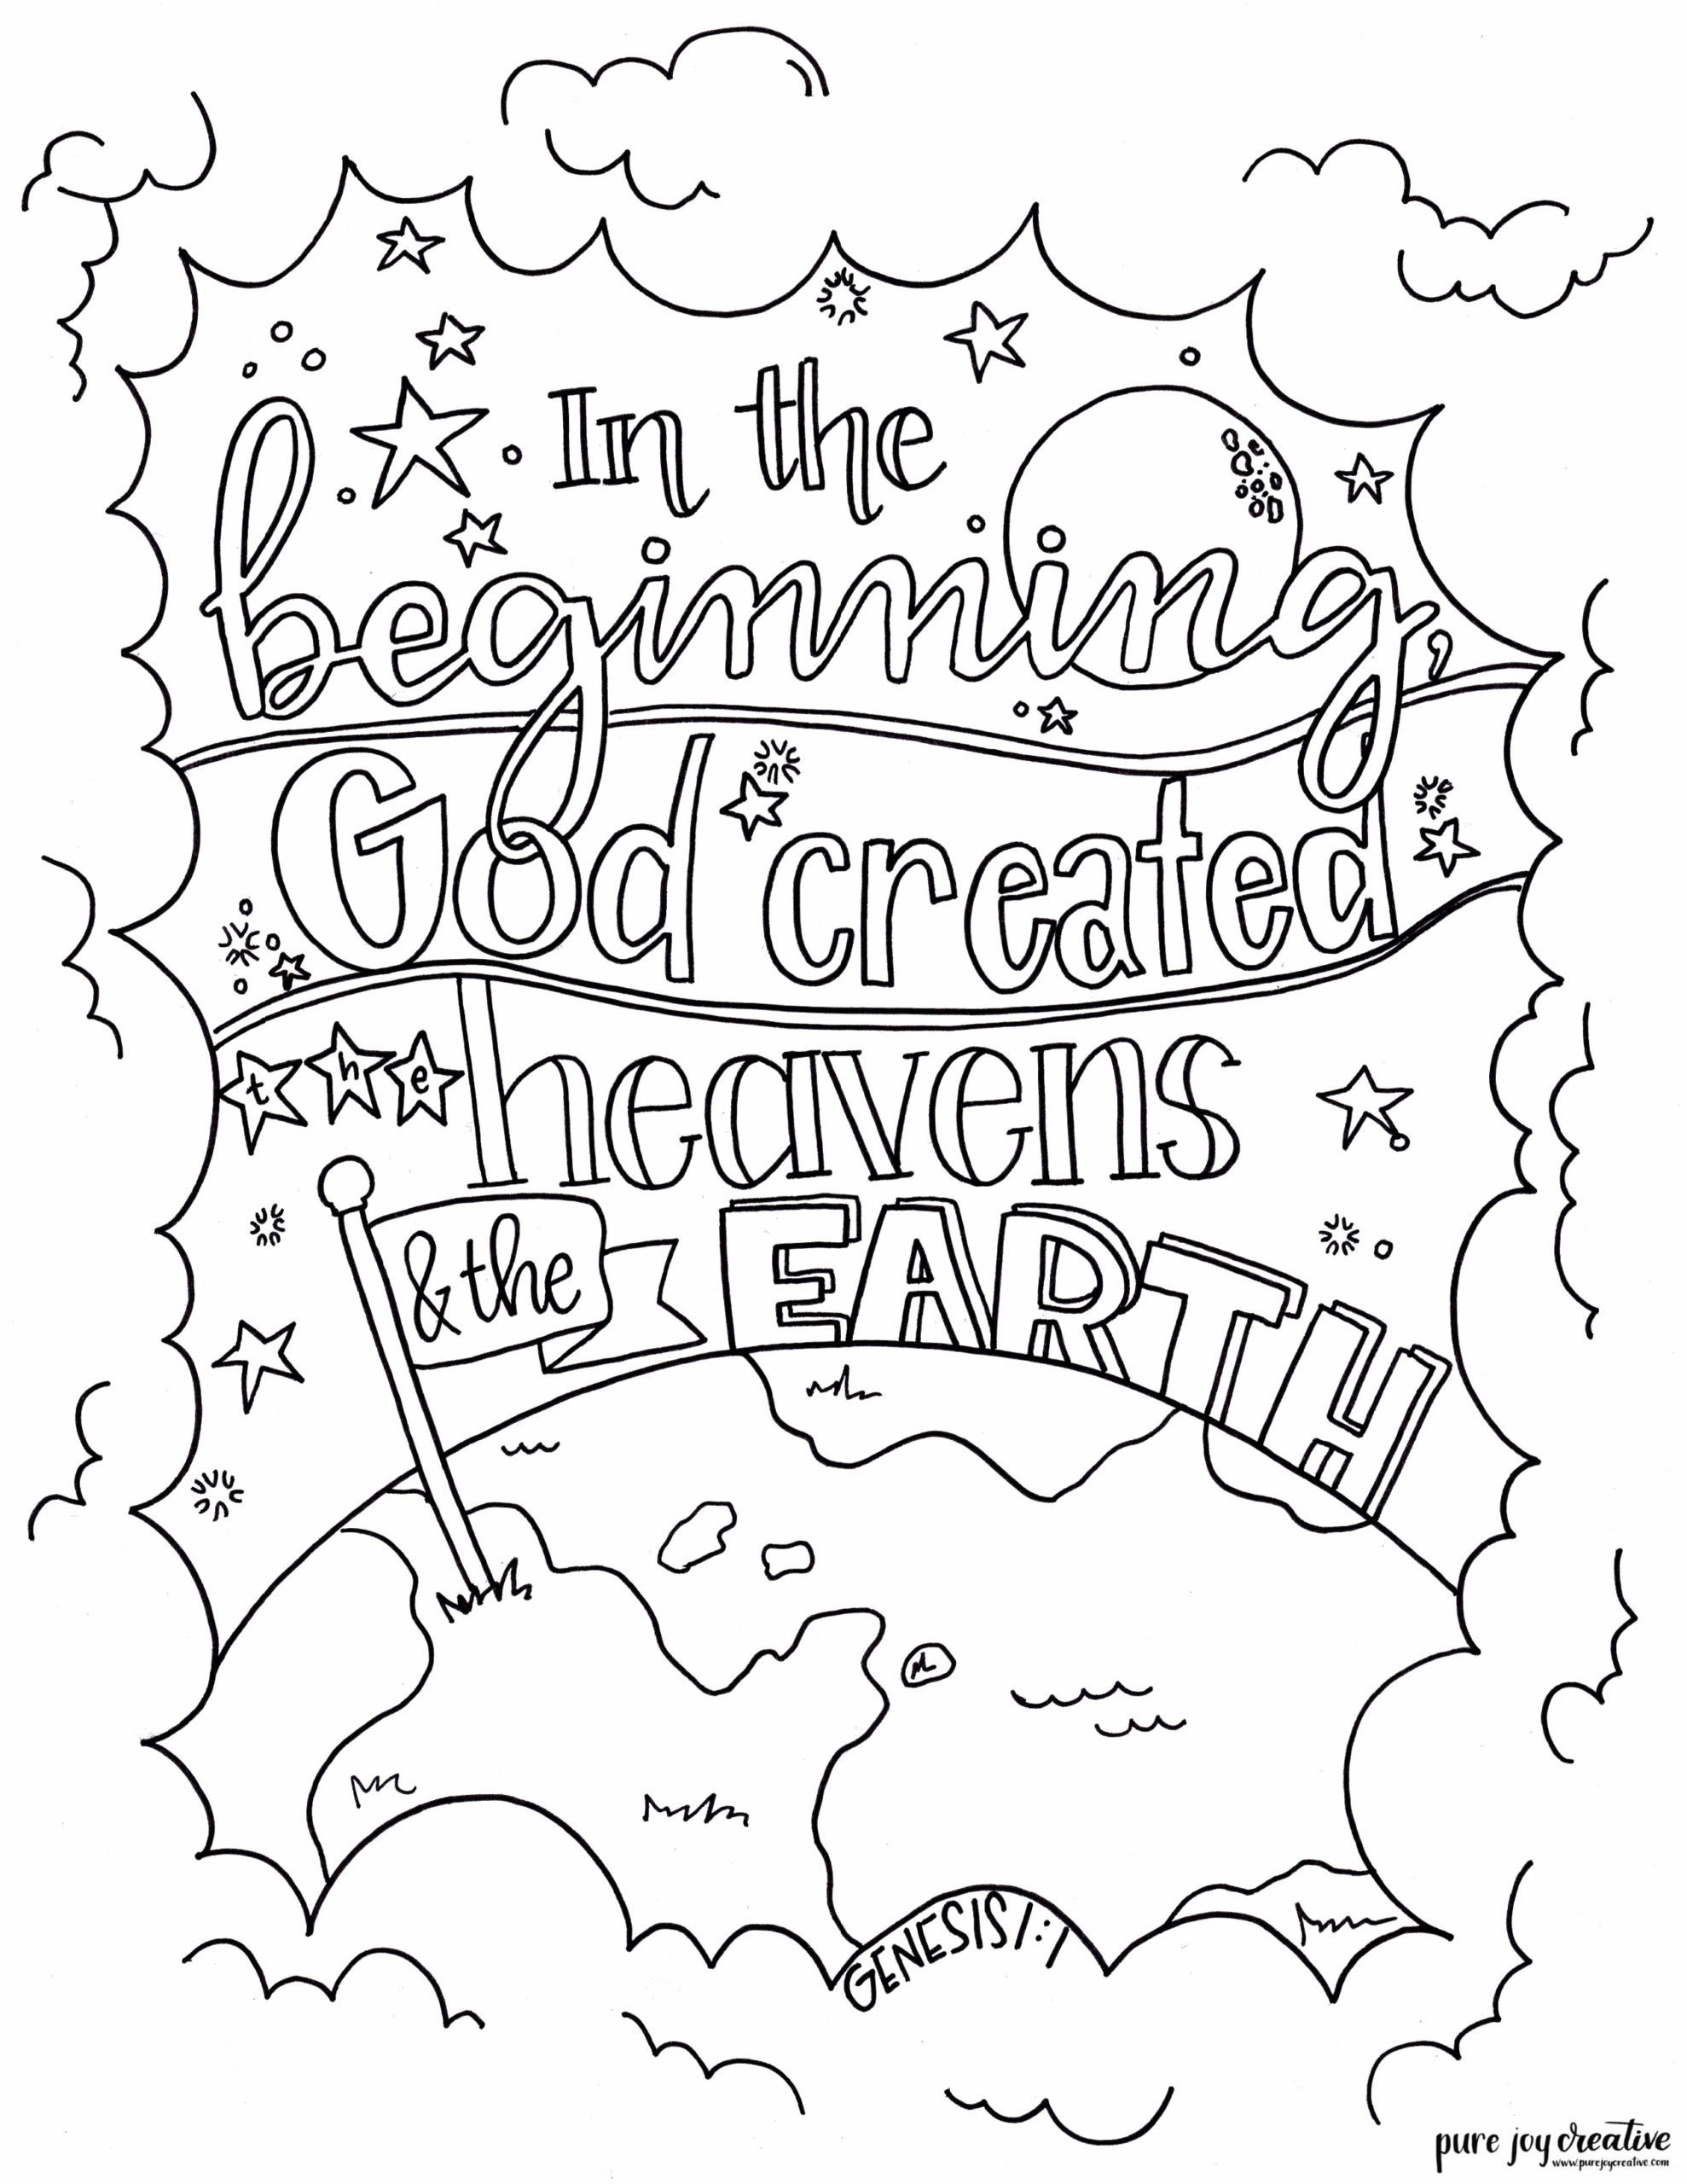 In the
beginning,
God created
the heavens
& the EARTH
GENESIS 1:1
pure joy creative
www.purejoycreative.com